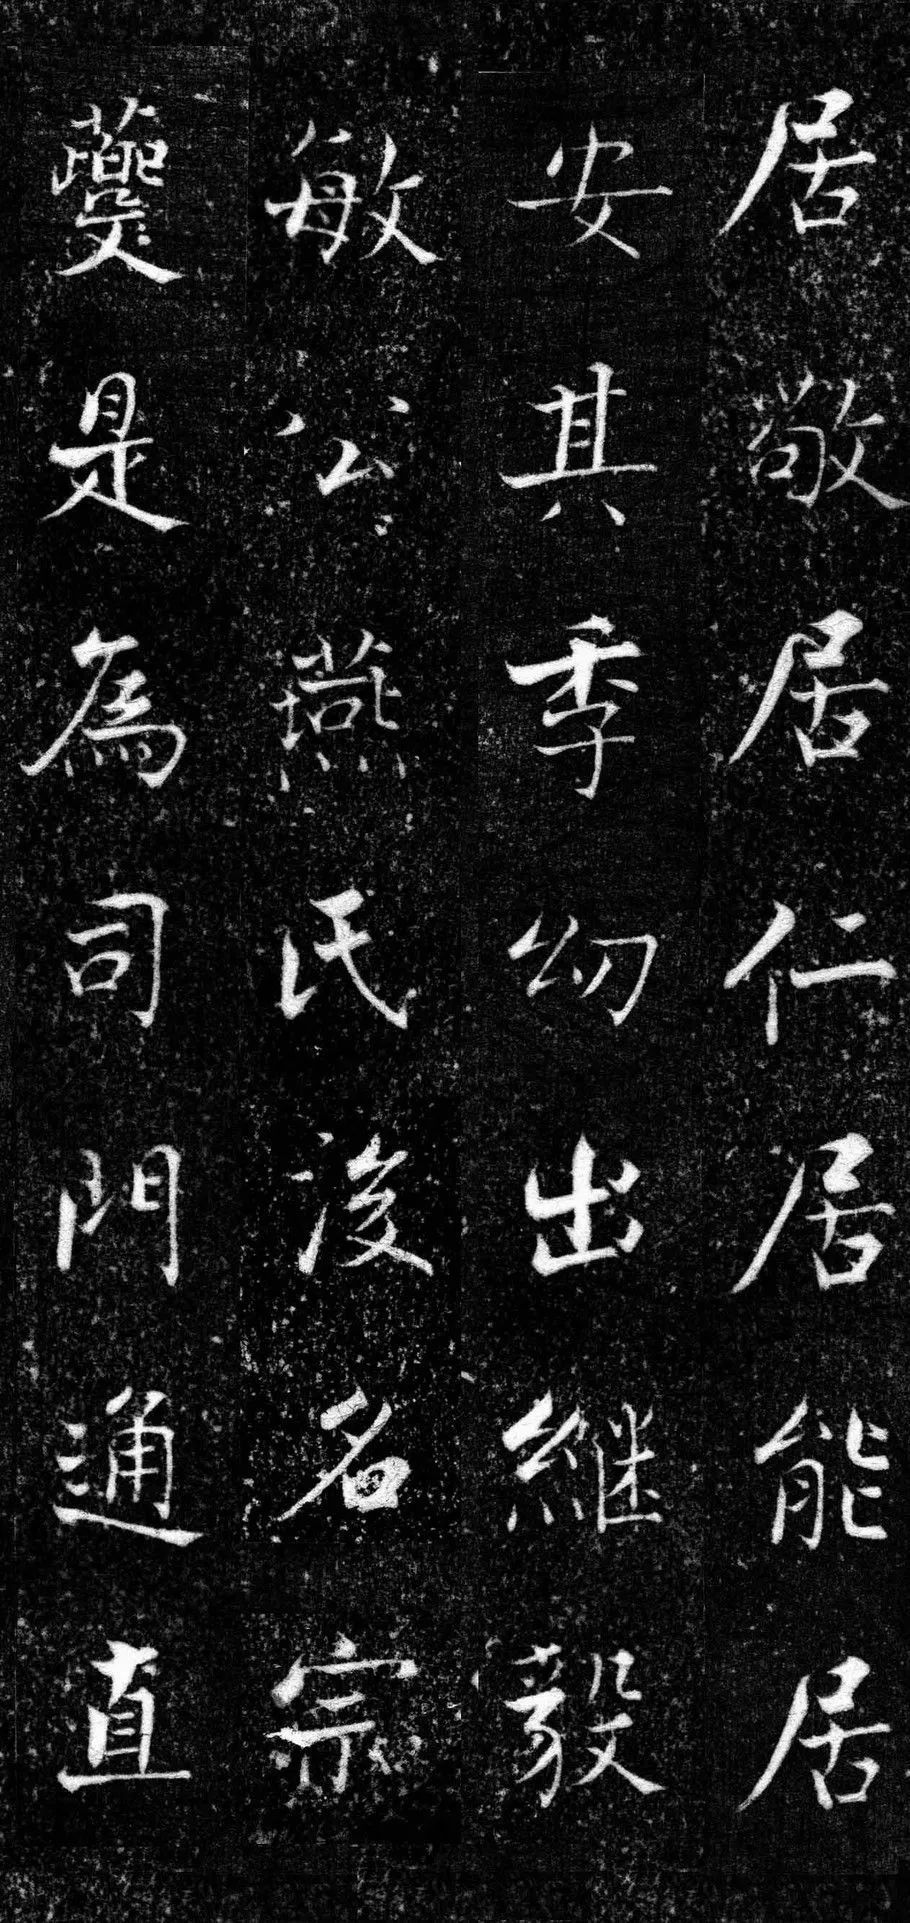 居敬居仁居能居
安其季幼出継毅
敏公燕氏後名宗
蘷是為司門通直